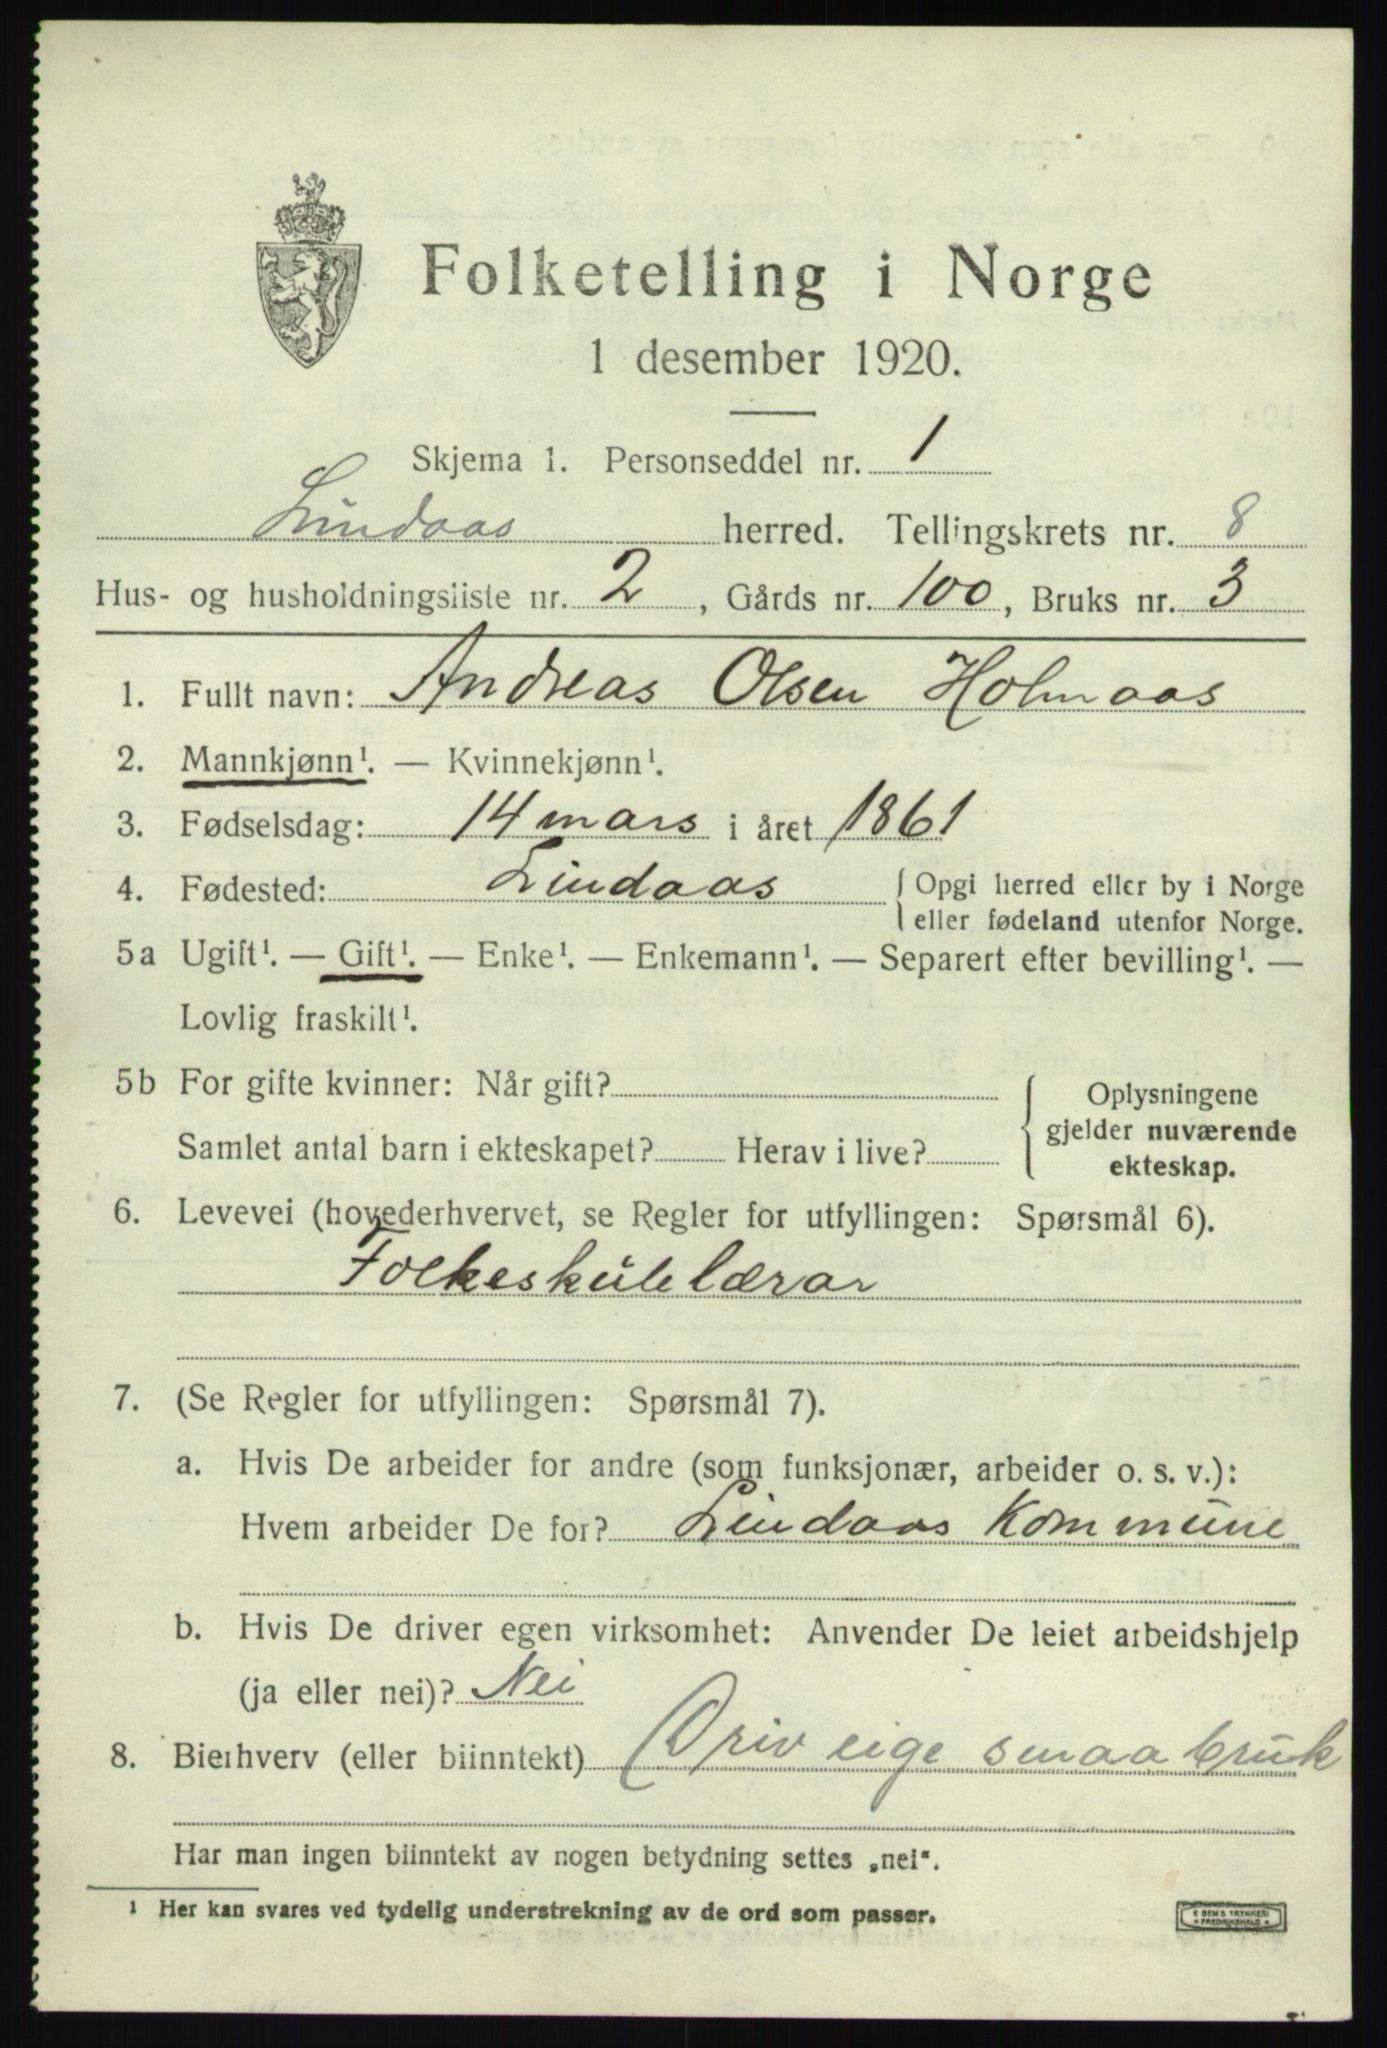 Folketelling i Norge
1 desember 1920.
Skjema 1. Personseddel nr. 1
Lindaas herred. Tellingskrets nr. 8
Hus- og husholdningsliste nr. 2, Gårds nr. 100, Bruks nr. 3
1. Fullt navn: Andreas Olsen Holmaas
2. Mannkjønn¹. — Kvinnekjønn¹.
3. Fødselsdag: 14 mars i året 1861
4. Fødested: Lindaas { Opgi herred eller by i Norge
eller fødeland utenfor Norge.
5a Ugift¹. — Gift¹. — Enke¹. — Enkemann¹. — Separert efter bevilling¹. —
Lovlig fraskilt¹.
5b For gifte kvinner: Når gift? { Oplysningene
gjelder nuværende
Samlet antal barn i ekteskapet? Herav i live?
ekteskap.
6. Levevei (hovederhvervet, se Regler for utfyllingen: Spørsmål 6).
Folkeskulelærar
7. (Se Regler for utfyllingen: Spørsmål 7).
a. Hvis De arbeider for andre (som funksjonær, arbeider o. s. v.):
Hvem arbeider De for? Lindaas Kommune
b. Hvis De driver egen virksomhet: Anvender De leiet arbeidshjelp
(ja eller nei)? Nei
8. Bierhverv (eller biinntekt) Driv eige smaabruk
Har man ingen biinntekt av nogen betydning settes „nei".
¹ Her kan svares ved tydelig understrekning av de ord som passer.